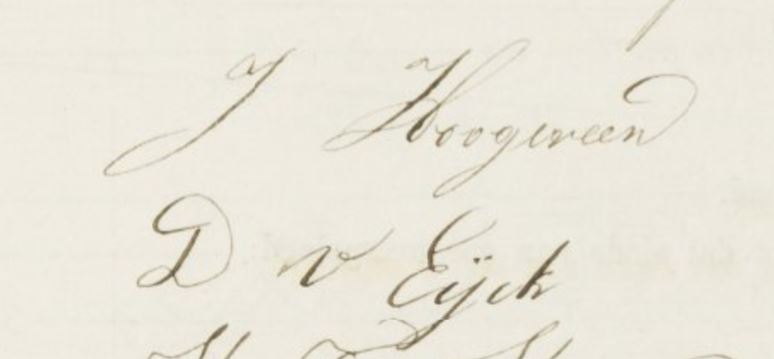 J Hoogeveen
D v Eijck